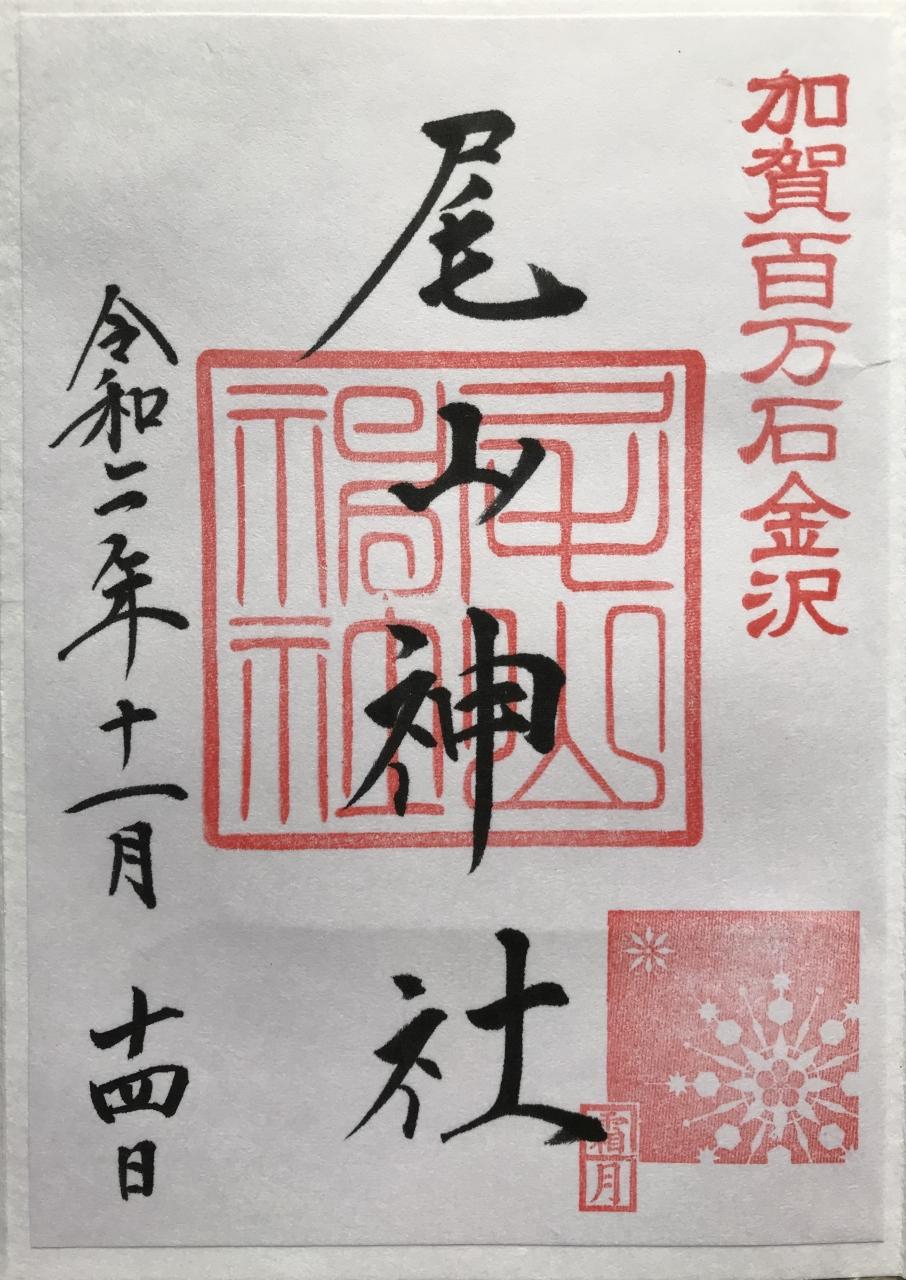 加賀百万石金沢
尾山神社
尾山神社
霜月
令和二年十一月十四日